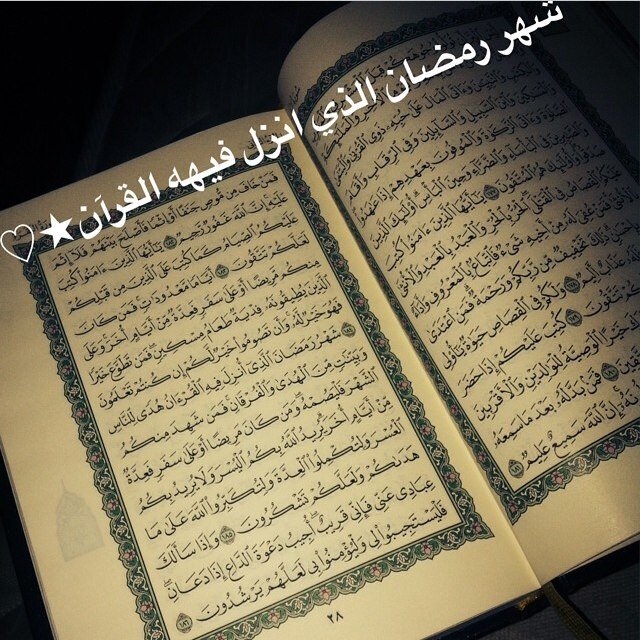 شهر رمضان الذي انزل فيهه القرآن★♡
وَٱلْكِتَٰبِ وَٱلنَّبِيِّـۧنَ وَءَاتَى ٱلْمَالَ عَلَىٰ حُبِّهِۦ ذَوِى ٱلْقُرْبَىٰ
وَٱلْمَسَٰكِينَ وَٱبْنَ ٱلسَّبِيلِ وَٱلسَّآئِلِينَ وَفِى ٱلرِّقَابِ
ٱلصَّلَوٰةَ وَءَاتَى ٱلزَّكَوٰةَ وَٱلْمُوفُونَ بِعَهْدِهِمْ إِذَا عَٰهَدُوا۟
فِى ٱلْبَأْسَآءِ وَٱلضَّرَّآءِ وَحِينَ ٱلْبَأْسِ أُو۟لَٰٓئِكَ ٱلَّذِينَ
صَدَقُوا۟ وَأُو۟لَٰٓئِكَ هُمُ ٱلْمُتَّقُونَ ١٧٧ يَٰٓأَيُّهَا ٱلَّذِينَ ءَامَنُوا۟ كُتِبَ
عَلَيْكُمُ ٱلْقِصَاصُ فِى ٱلْقَتْلَى ٱلْحُرُّ بِٱلْحُرِّ وَٱلْعَبْدُ بِٱلْعَبْدِ وَٱلْأُنثَىٰ
بِٱلْأُنثَىٰ فَمَنْ عُفِىَ لَهُۥ مِنْ أَخِيهِ شَىْءٌ فَٱتِّبَاعٌۢ بِٱلْمَعْرُوفِ وَأَدَآءٌ
ذَٰلِكَ تَخْفِيفٌ مِّن رَّبِّكُمْ وَرَحْمَةٌ فَمَنِ ٱعْتَدَىٰ
عَذَابٌ أَلِيمٌ ١٧٨ وَلَكُمْ فِى ٱلْقِصَاصِ حَيَوٰةٌ يَٰٓأُو۟لِى
تَتَّقُونَ ١٧٩ كُتِبَ عَلَيْكُمْ إِذَا حَضَرَ
خَيْرًا ٱلْوَصِيَّةُ لِلْوَٰلِدَيْنِ وَٱلْأَقْرَبِينَ
١٨٠ فَمَنۢ بَدَّلَهُۥ بَعْدَ مَا سَمِعَهُۥ
إِنَّ ٱللَّهَ سَمِيعٌ عَلِيمٌ ١٨١
فَمَنْ خَافَ مِن مُّوصٍ جَنَفًا أَوْ إِثْمًا فَأَصْلَحَ بَيْنَهُمْ فَلَآ إِثْمَ
عَلَيْهِ إِنَّ ٱللَّهَ غَفُورٌ رَّحِيمٌ ١٨٢ يَٰٓأَيُّهَا ٱلَّذِينَ ءَامَنُوا۟ كُتِبَ
عَلَيْكُمُ ٱلصِّيَامُ كَمَا كُتِبَ عَلَى ٱلَّذِينَ مِن قَبْلِكُمْ
لَعَلَّكُمْ تَتَّقُونَ ١٨٣ أَيَّامًا مَّعْدُودَٰتٍ فَمَن كَانَ
مِنكُم مَّرِيضًا أَوْ عَلَىٰ سَفَرٍ فَعِدَّةٌ مِّنْ أَيَّامٍ أُخَرَ وَعَلَى
ٱلَّذِينَ يُطِيقُونَهُۥ فِدْيَةٌ طَعَامُ مِسْكِينٍ فَمَن تَطَوَّعَ خَيْرًا
فَهُوَ خَيْرٌ لَّهُۥ وَأَن تَصُومُوا۟ خَيْرٌ لَّكُمْ إِن كُنتُمْ تَعْلَمُونَ
١٨٤ شَهْرُ رَمَضَانَ ٱلَّذِىٓ أُنزِلَ فِيهِ ٱلْقُرْءَانُ هُدًى لِّلنَّاسِ
وَبَيِّنَٰتٍ مِّنَ ٱلْهُدَىٰ وَٱلْفُرْقَانِ فَمَن شَهِدَ مِنكُمُ
ٱلشَّهْرَ فَلْيَصُمْهُ وَمَن كَانَ مَرِيضًا أَوْ عَلَىٰ سَفَرٍ فَعِدَّةٌ
مِّنْ أَيَّامٍ أُخَرَ يُرِيدُ ٱللَّهُ بِكُمُ ٱلْيُسْرَ وَلَا يُرِيدُ بِكُمُ
ٱلْعُسْرَ وَلِتُكْمِلُوا۟ ٱلْعِدَّةَ وَلِتُكَبِّرُوا۟ ٱللَّهَ عَلَىٰ مَا
هَدَىٰكُمْ وَلَعَلَّكُمْ تَشْكُرُونَ ١٨٥ وَإِذَا سَأَلَكَ
عِبَادِى عَنِّى فَإِنِّى قَرِيبٌ أُجِيبُ دَعْوَةَ ٱلدَّاعِ إِذَا دَعَانِ
فَلْيَسْتَجِيبُوا۟ لِى وَلْيُؤْمِنُوا۟ بِى لَعَلَّهُمْ يَرْشُدُونَ ١٨٦
٢٨